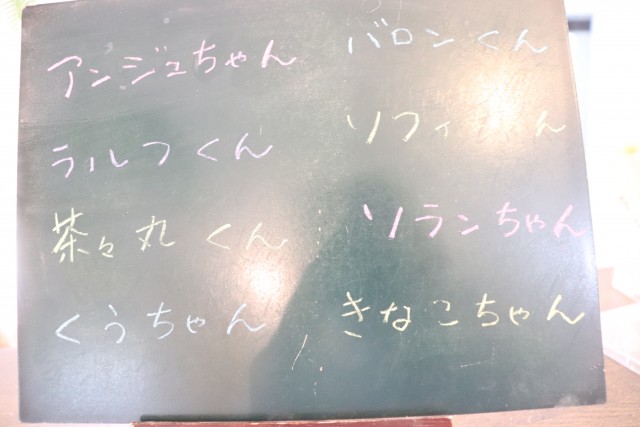 アンジュちゃん
ラルフくん
茶々丸くん
くぅちゃん
バロンくん
ソフィ ん
ソランちゃん
きなこちゃん